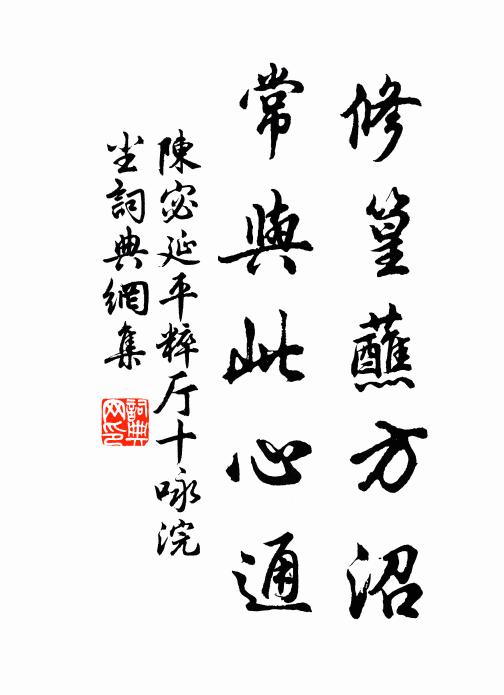 修篁蘸方沼
常與此心通
陳宓延平粹厅十咏浣
尘詞典網集
詞典网印